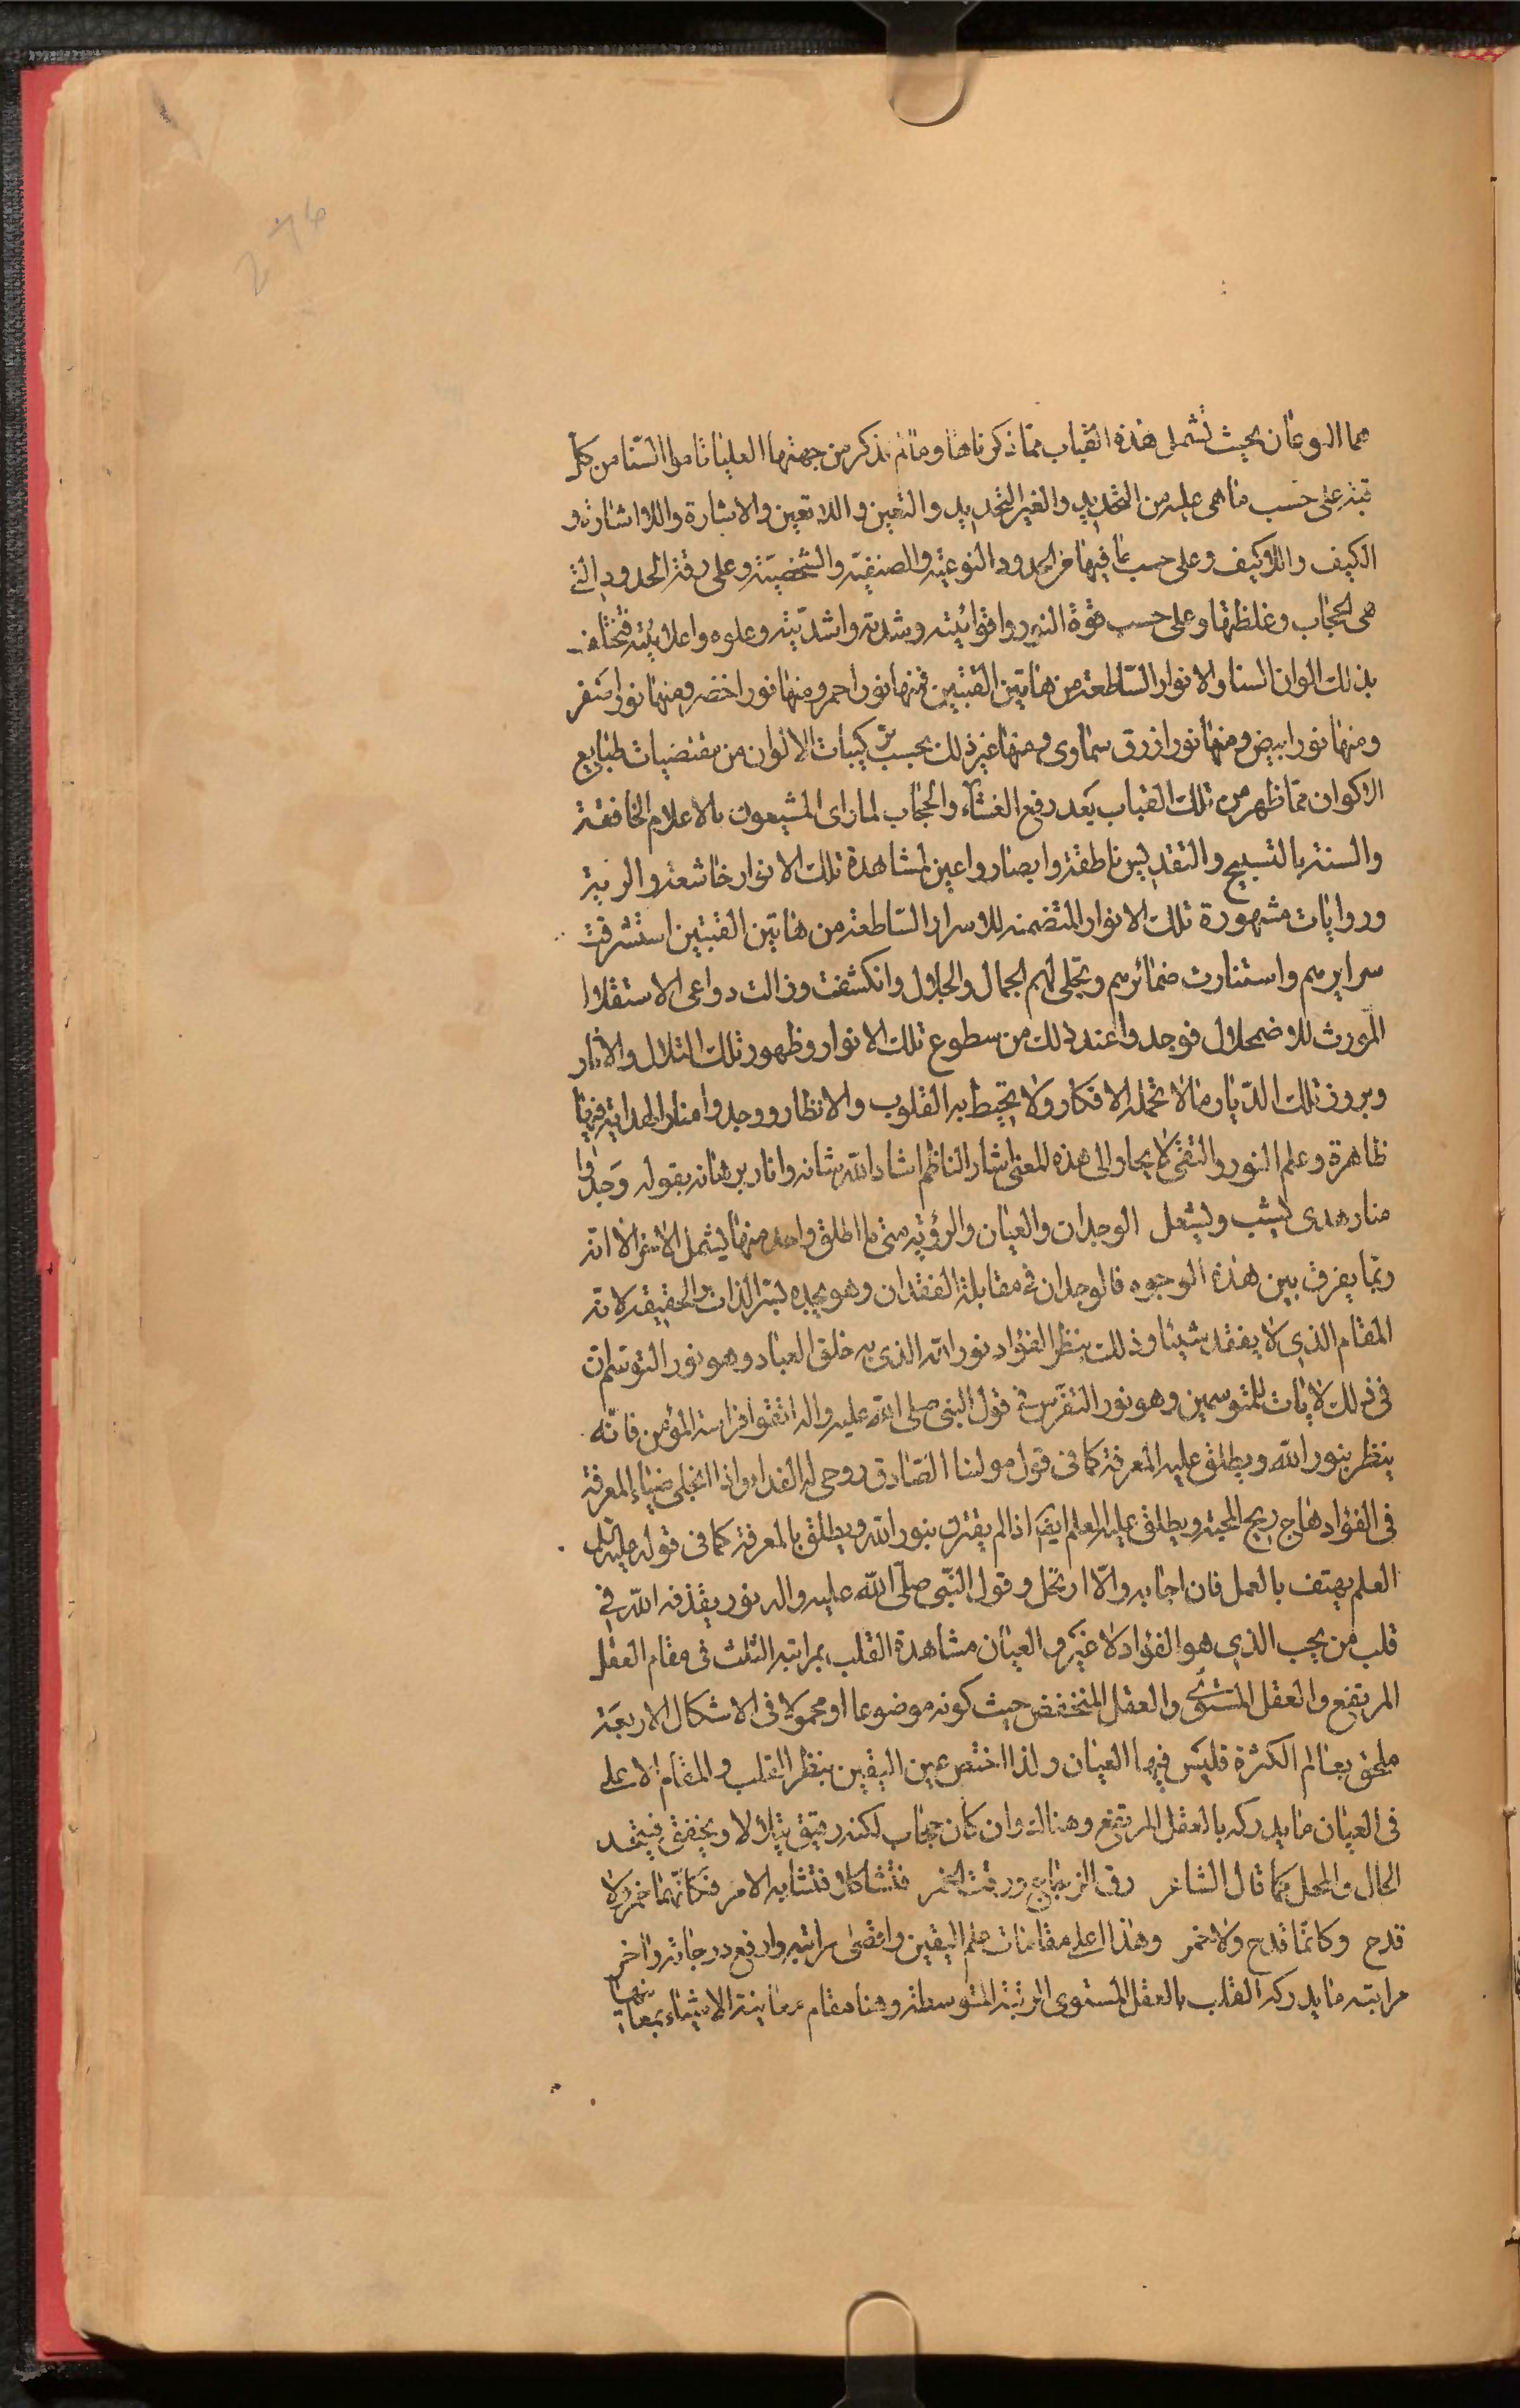 هما النوعان بحيث تشمل هذه القباب مما ذكرناها وما لم نذكر من جهتها العليا ثامرا السنا من كل
قبة على حسب ما هي عليه من التحديد والغير التحديد والتعين واللا تعين والاشارة واللا اشارة و
الكيف واللا كيف وعلى حسب ما فيها من الحدود النوعية والصنفية والشخصية وعلى رقة الحدود التي
هي الحجاب وغلظتها وعلى حسب قوة النور واقوائيته وشدته واشديته وعلوه واعلائيته فتختلف
بذلك الوان السنا والانوار الساطعة من هاتين القبتين فمنها نور احمر ومنها نور اخضر ومنها نور اصفر
ومنها نور ابيض ومنها نور ازرق سماوي ومنها غير ذلك بحسب تركيبات الالوان من مقتضيات طبايع
الاكوان مما ظهر من تلك القباب بعد رفع الغشاء والحجاب لما راى المشيعون بالاعلام الخافقة
والسنة بالتسبيح والتقديس ناطقة وابصار واعين لمشاهدة تلك الانوار خاشعة والوية
وروايات مشهورة تلك الانوار المتضمنه للاسرار الساطعة من هاتين القبتين استشرقت
سرايرهم واستنارت ضمائرهم وتجلى لهم الجمال والجلال وانكشفت وزالت دواعي الاستقلا
المورث للاضمحلال فوجدوا عند ذلك من سطوع تلك الانوار وظهور تلك التلال والاثار
وبروز تلك الديار ما لا تحمله الافكار ولا يحيط به القلوب والانظار ووجدوا منار الهداية فيها
ظاهرة وعلم النور والتقى لايحا والى هذه المعنى اشار الناظم اشاد الله شانه وانار برهانه بقوله وجدوا
منار هدى يشب ويشعل الوجدان والعيان والرؤية متى ما اطلق واحد منها يشمل الاخر الا انه
ربما يفرق بين هذه الوجوه فالوجدان في مقابلة الفقدان وهو يجده لستر الذات والحقيقة لانه
المقام الذي لا يفقد شيئا وذلك بنظر الفؤاد نور الله الذي به خلق العباد وهو نور التوسم ان
في ذلك لايات للمتوسمين وهو نور التفرس في قول النبي صلى الله عليه واله اتقوا فراسة المؤمن فانه
ينظر بنور الله ويطلق عليه المعرفة كما في قول مولينا الصادق روحي له الفداء واذا انجلى ضياء المعرفة
في الفؤاد هاج ريح المحبة ويطلق عليه العلم ايضا اذا لم يقترن بنور الله ويطلق بالمعرفة كما في قوله عليه السلام
العلم يهتف بالعمل فان اجابه والا ارتحل وقول النبي صلى الله عليه واله نور يقذفه الله في
قلب من يحب الذي هو الفؤاد لا غيره والعيان مشاهدة القلب بمراتبه الثلث في مقام العقل
المرتفع والعقل المستوي والعقل المنخفض حيث كونه موضوعا او محمولا في الاشكال الاربعة
ملحق بعالم الكثرة فليس فيها العيان ولذا اختص عين اليقين بنظر القلب والمقام الاعلى
في العيان ما يدركه بالعقل المرتفع وهنالك وان كان حجاب لكنه رقيق يتلألأ ويخفق فيتحد
الحال والمحل كما قال الشاعر رق الزجاج ورقت الخمر فتشاكلا فتشابه الامر فكانما خمر ولا
قدح وكانما قدح ولا خمر وهذا اعلى مقامات علم اليقين واقصى مراتبه وارفع درجاته واخر
مراتبه ما يدركه القلب بالعقل المستوي المرتبة المتوسطة وهنا مقام معاينة الاشياء بمعانيها